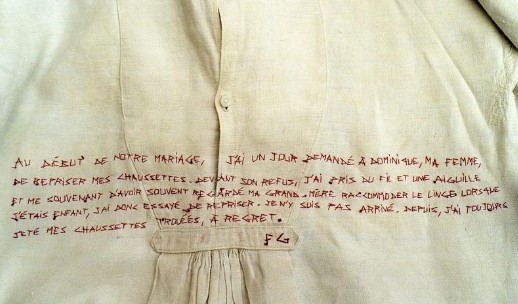 AU DÉBUT DE NOTRE MARIAGE, J'AI UN JOUR DEMANDÉ À DOMINIQUE, MA FEMME,
DE REPRISER MES CHAUSSETTES. DEVANT SON REFUS, J'AI PRIS DU FIL ET UNE AIGUILLE
ET ME SOUVENANT D'AVOIR SOUVENT REGARDÉ MA GRAND-MÈRE RACCOMMODER LE LINGE LORSQUE
J'ÉTAIS ENFANT, J'AI DONC ESSAYÉ DE REPRISER. JE N'Y SUIS PAS ARRIVÉ. DEPUIS, J'AI TOUJOURS
JETÉ MES CHAUSSETTES TROUÉES, À REGRET.
FG